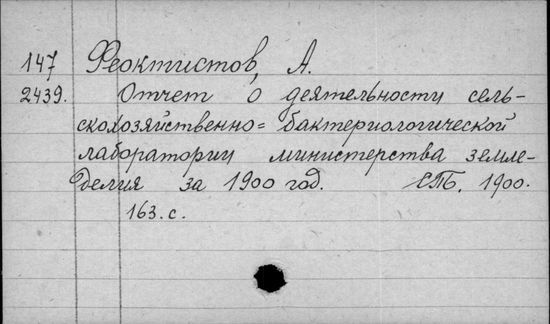 147 Феоктистов, А.
2439. Отчет о деятельности сель-
скохозяйственно= бактериологической
лаборатории министерства земле-
делия за 1900 год. СПБ, 1900.
163. с.